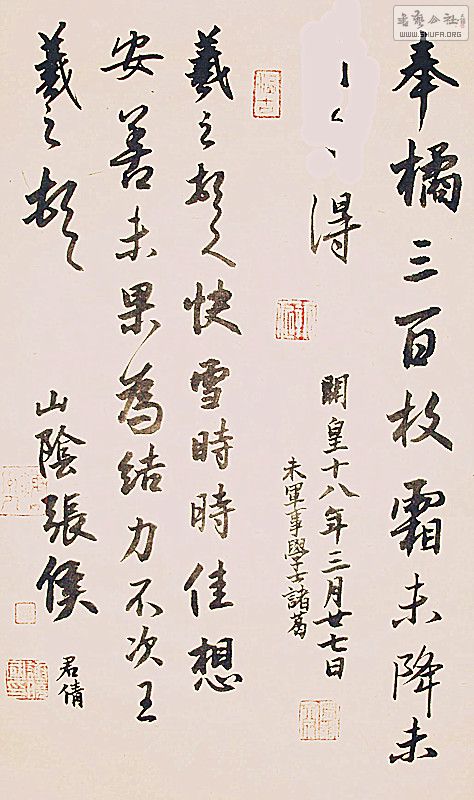 書藝公社
WWW.SHUFA.ORG
奉橘三百枚霜未降未
得
開皇十八年三月廿七日
未軍事學士諸葛
羲之頓首快雪時時佳想
安善未果為結力不次王
羲之頓首
山陰張侯
君倩